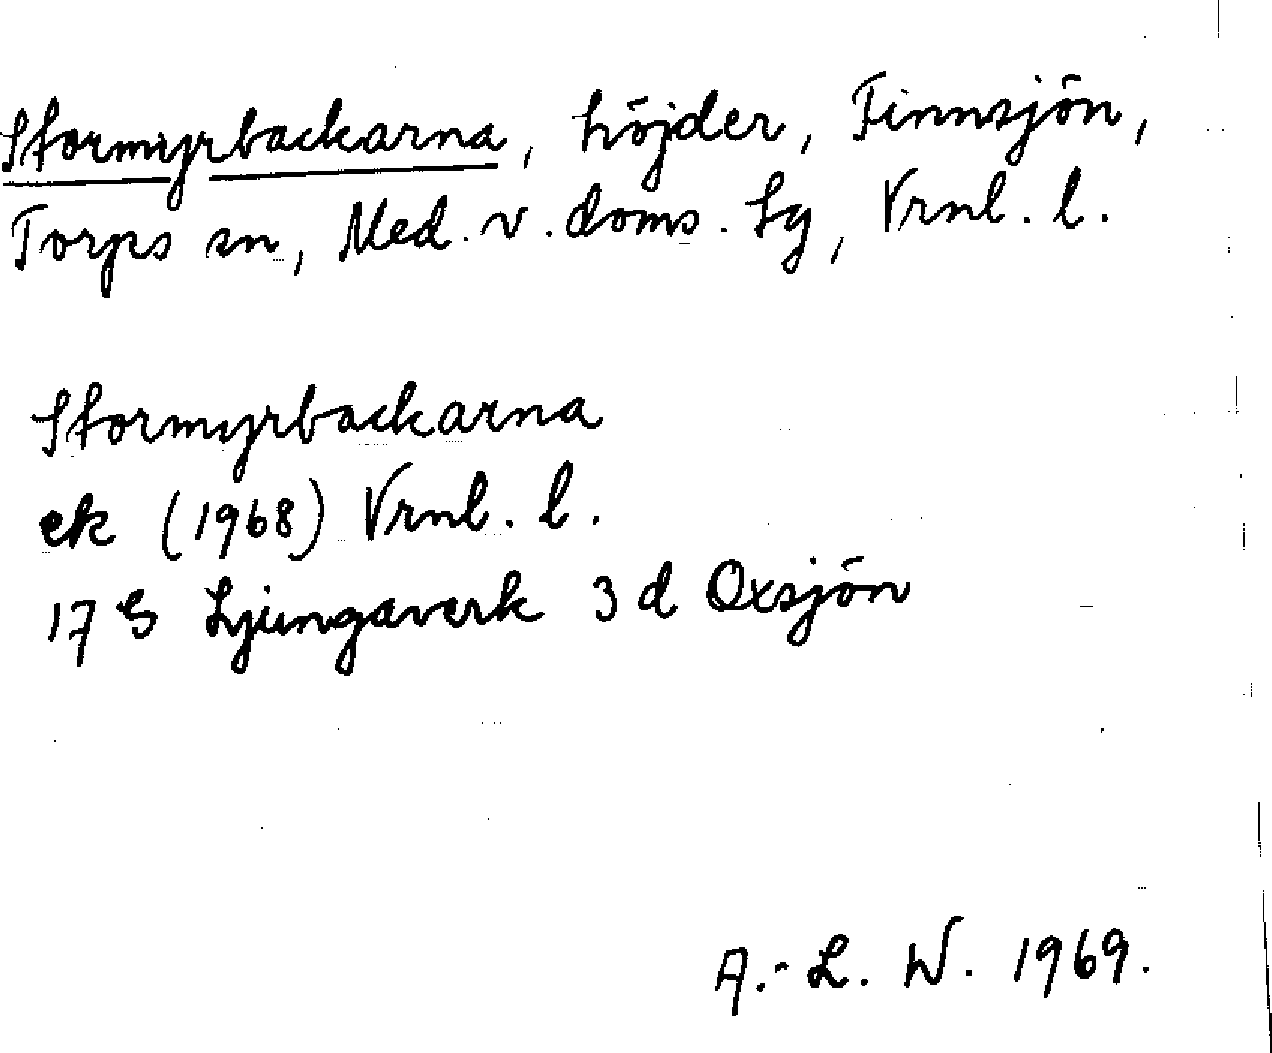 Stormyrbackarna, höjder, Finnsjön,
Torps sn, Med. v. doms. lg, Vrnl. l.
Stormyrbackarna
ek (1968) Vrnl. l.
17 G Ljungaverk 3 d Oxsjön
A.-L. W. 1969.